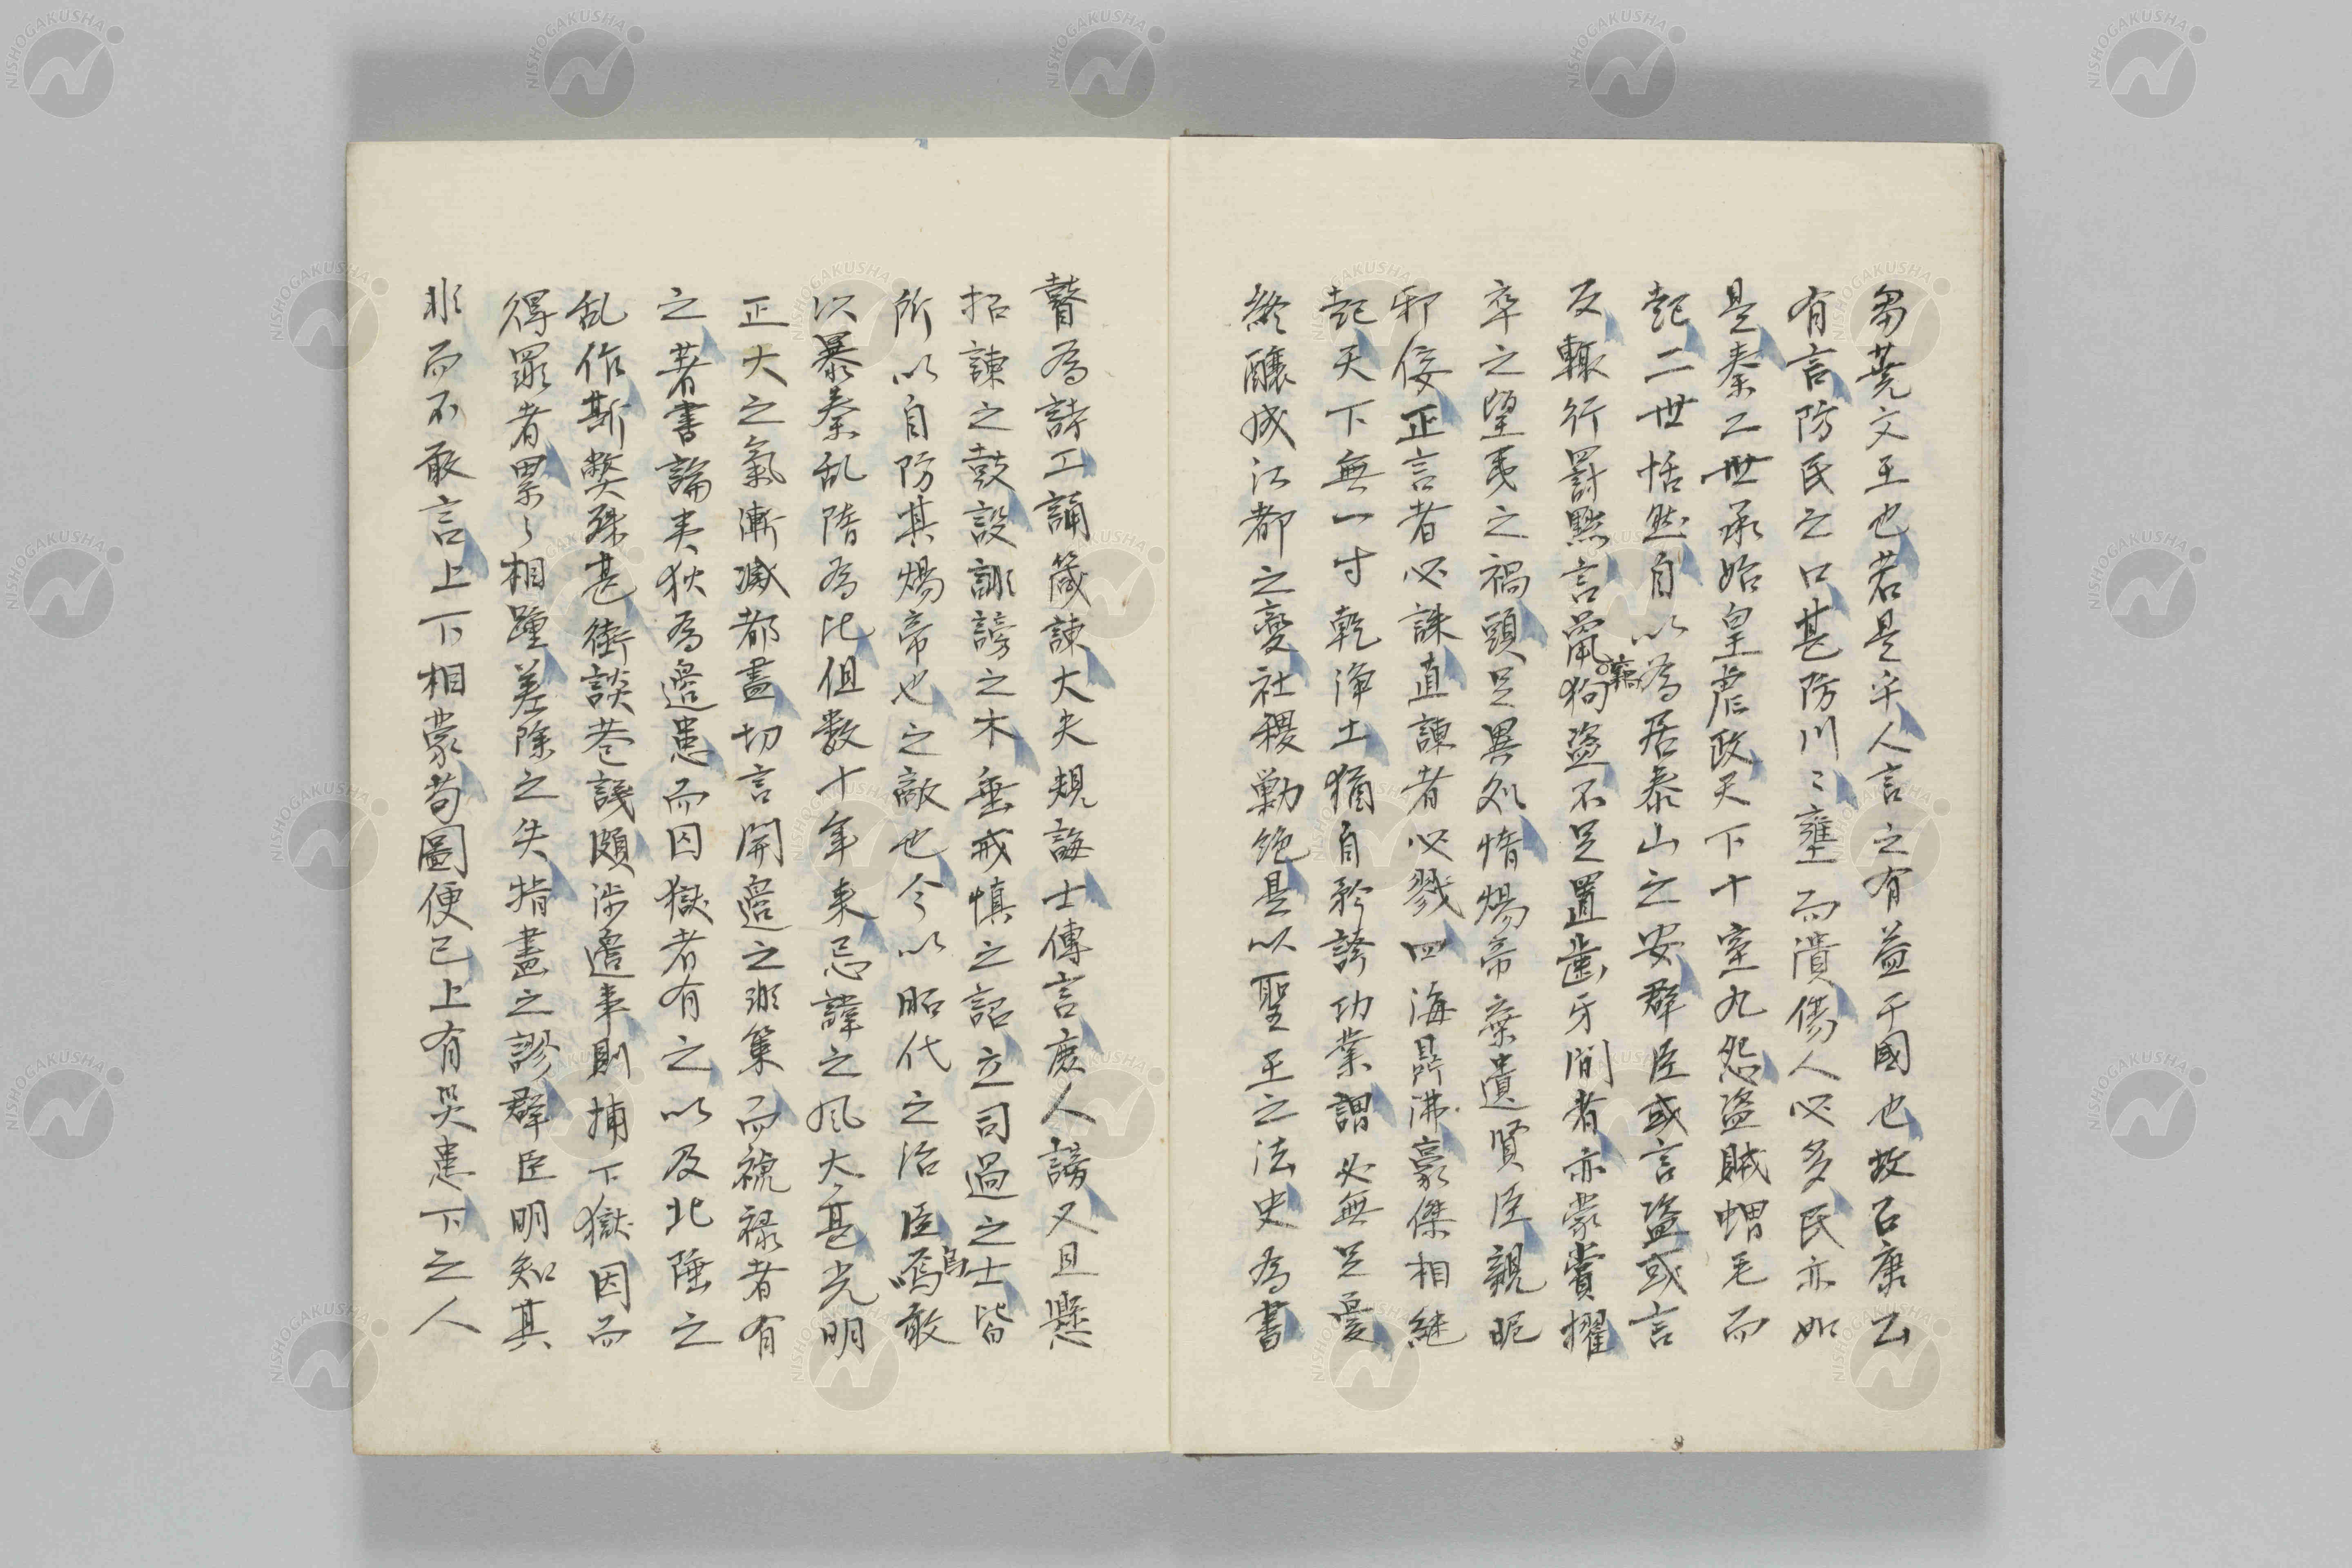 芻蕘文王也若是乎人言之有益于國也故召康公
有言防民之口甚防川〻壅而潰傷人必多民亦如
是秦二世承始皇虐政天下十室九怨盗賊蝟毛而
起二世恬然自以為居泰山之安群臣或言盗或言
反輙行罸黙言鼠竊狗盗不足置歯牙間者亦蒙賞擢
卒之望夷之禍頭足異処惰煬帝棄遺賢臣親昵
邪佞正言者必誅直諫者必戮四海鼎沸豪傑相継
起天下無一寸乾浄土猶自矜誇功業謂必無足憂
終醸成江都之變社稷勦絶是以聖王之法史為書
瞽為詩工誦箴諫大夫規誨士傳言庶人謗又且懸
招諫之鼓設誹謗之木垂戒慎之詔立司過之士皆
所以自防其煬帝也之敵也今以昭代之治臣烏敢
以暴秦乱隋為比但数十年来忌諱之風太甚光明
正大之氣漸滅都盡切言開邉之非策而褫禄者有
之著書論夷狄為邉患而囚獄者有之以及北陲之
乱作斯獘殊甚街談巷議頗渉邉事則捕下獄因而
得罪者累〻相踵差除之失措畫之謬群臣明知其
非而不敢言上下相蒙苟圖便已上有哭患下之人
NISHOGAKUSHA